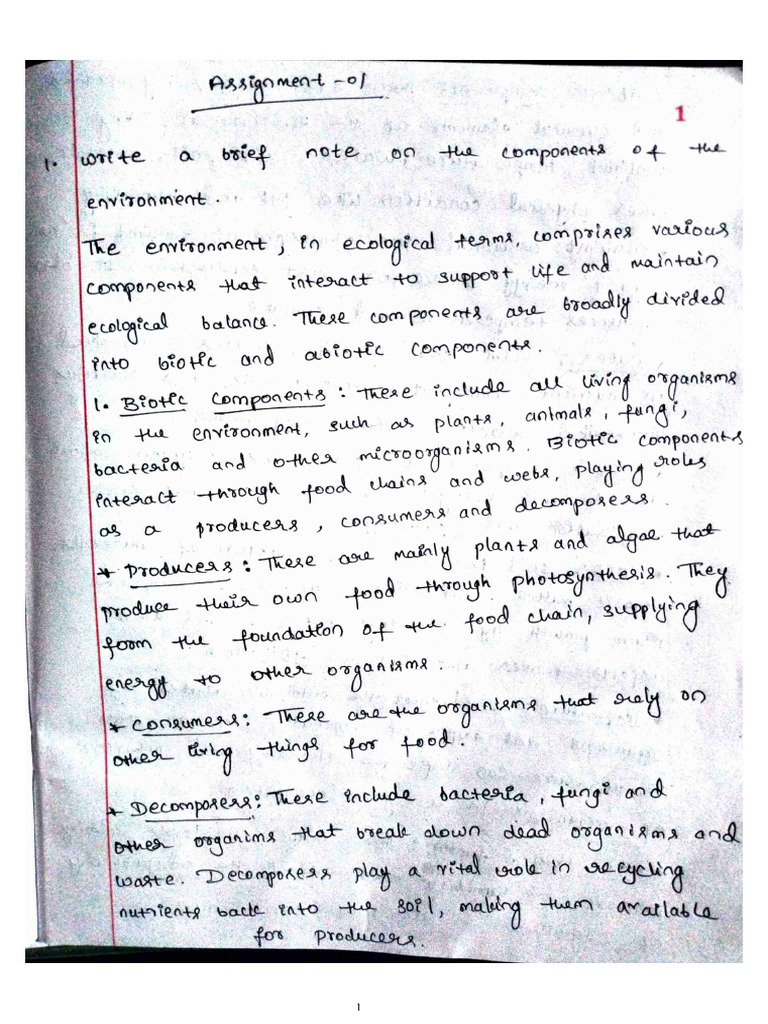 Assignment -01
1
1. write a brief note on the components of the
environment.
The environment, in ecological terms, comprises various
components that interact to support life and maintain
ecological balance. These components are broadly divided
into biotic and abiotic components.
1. Biotic Components : These include all living organisms
in the environment, such as plants, animals, fungi,
bacteria and other microorganisms. Biotic components
interact through food chains and webs, playing roles
as a producers, consumers and decomposers.
* Producers : These are mainly plants and algae that
produce their own food through photosynthesis. They
form the foundation of the food chain, supplying
energy to other organisms.
* Consumers : These are the organisms that rely on
other living things for food.
* Decomposers : These include bacteria, fungi and
other organims that break down dead organisms and
waste. Decomposers play a vital role in recycling
nutrients back into the soil, making them available
for producers.
1